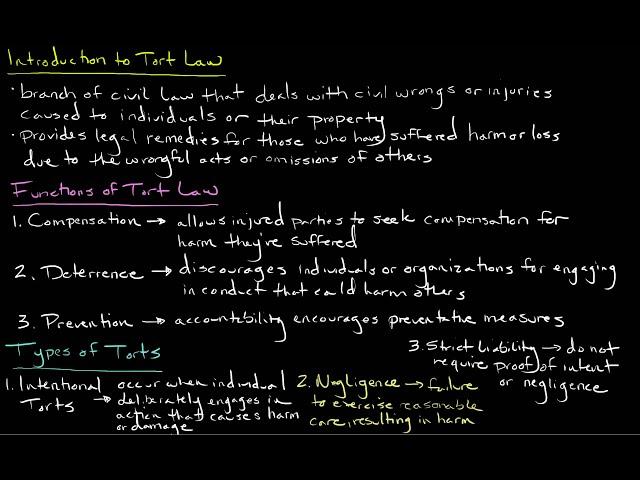 Introduction to Tort Law
· branch of civil law that deals with civil wrongs or injuries
caused to individuals or their property
· provides legal remedies for those who have suffered harm or loss
due to the wrongful acts or omissions of others
Functions of Tort Law
1. Compensation → allows injured parties to seek compensation for
harm they've suffered
2. Deterrence → discourages individuals or organizations for engaging
in conduct that could harm others
3. Prevention → accountability encourages preventative measures
Types of Torts
1. Intentional Torts → occur when individual
deliberately engages in
action that causes harm
or damage
2. Negligence → failure
to exercise reasonable
care, resulting in harm
3. Strict liability → do not
require proof of intent
or negligence